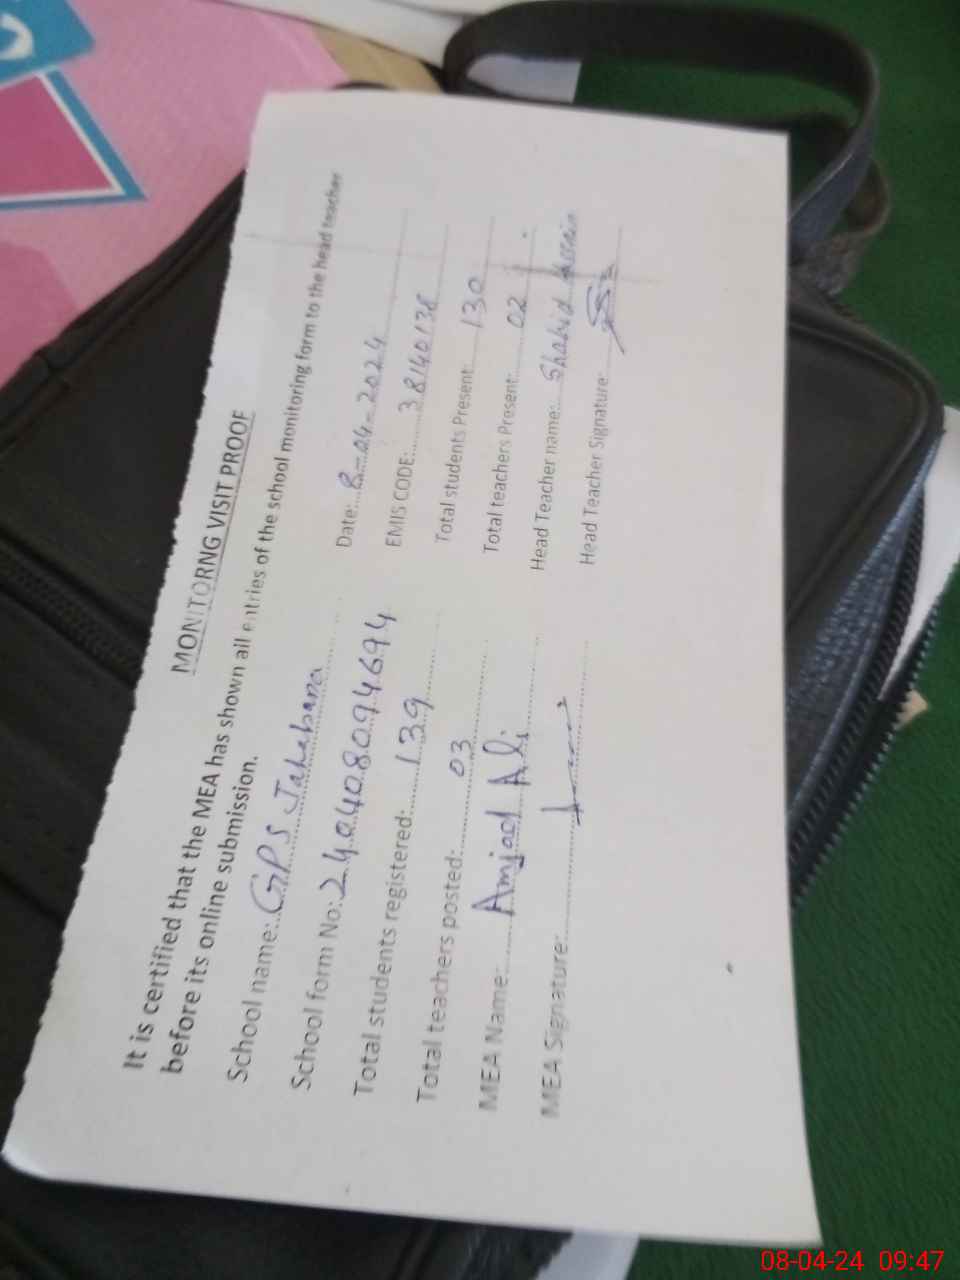 MONITORNG VISIT PROOF
It is certified that the MEA has shown all entries of the school monitoring form to the head teacher
before its online submission.
School name: GPS Jahabara Date: 8-04-2024
School form No: 240408094694 EMIS CODE: 38140138
Total students registered: 139 Total students Present: 130
Total teachers posted: 03 Total teachers Present: 02
MEA Name: Amjad Ali Head Teacher name: Shahid
MEA Signature: Head Teacher Signature:
08-04-24 09:47